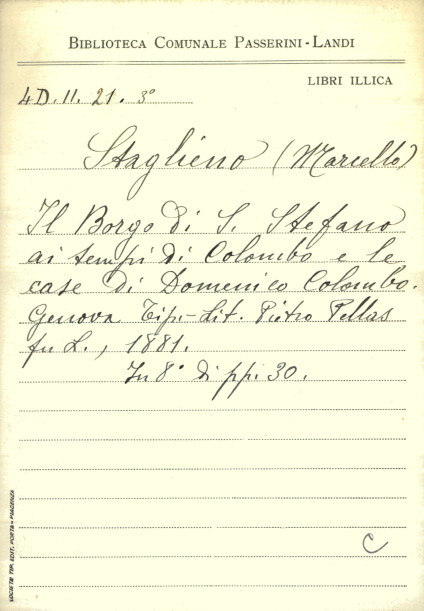 BIBLIOTECA COMUNALE PASSERINI-LANDI
LIBRI ILLICA
4D. II. 21. 3°
Staglieno (Marcello)
Il Borgo di S. Stefano
ai tempi di Colombo e le
case di Domenico Colombo.
Genova Tip.-Lit. Pietro Pellas
fu L., 1881.
In 8° di pp. 30.
C
SOCIETÀ TIP. EDIT. PORTA - PIACENZA